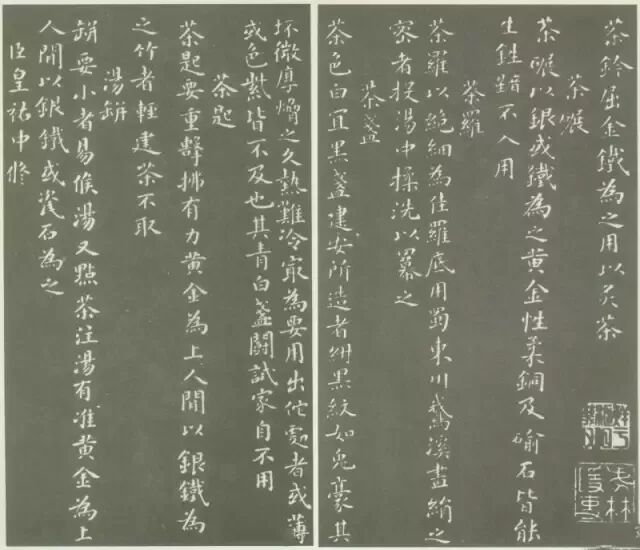 茶鈐屈金鐵為之用以炙茶
茶碾
茶碾以銀或鐵為之黃金性柔銅及鍮石皆能
生鉎不入用
茶羅
茶羅以絕細為佳羅底用蜀東川鵝溪畫絹之
密者投湯中揉洗以羃之
茶盞
茶色白宜黑盞建安所造者紺黑紋如兔毫其
坯微厚熁之久熱難冷最為要用出佗處者或薄
或色紫皆不及也其青白盞鬭試家自不用
茶匙
茶匙要重擊拂有力黃金為上人間以銀鐵為
之竹者輕建茶不取
湯缾
缾要小者易候湯又點茶注湯有准黃金為上
人間以銀鐵或瓷石為之
臣皇祐中修